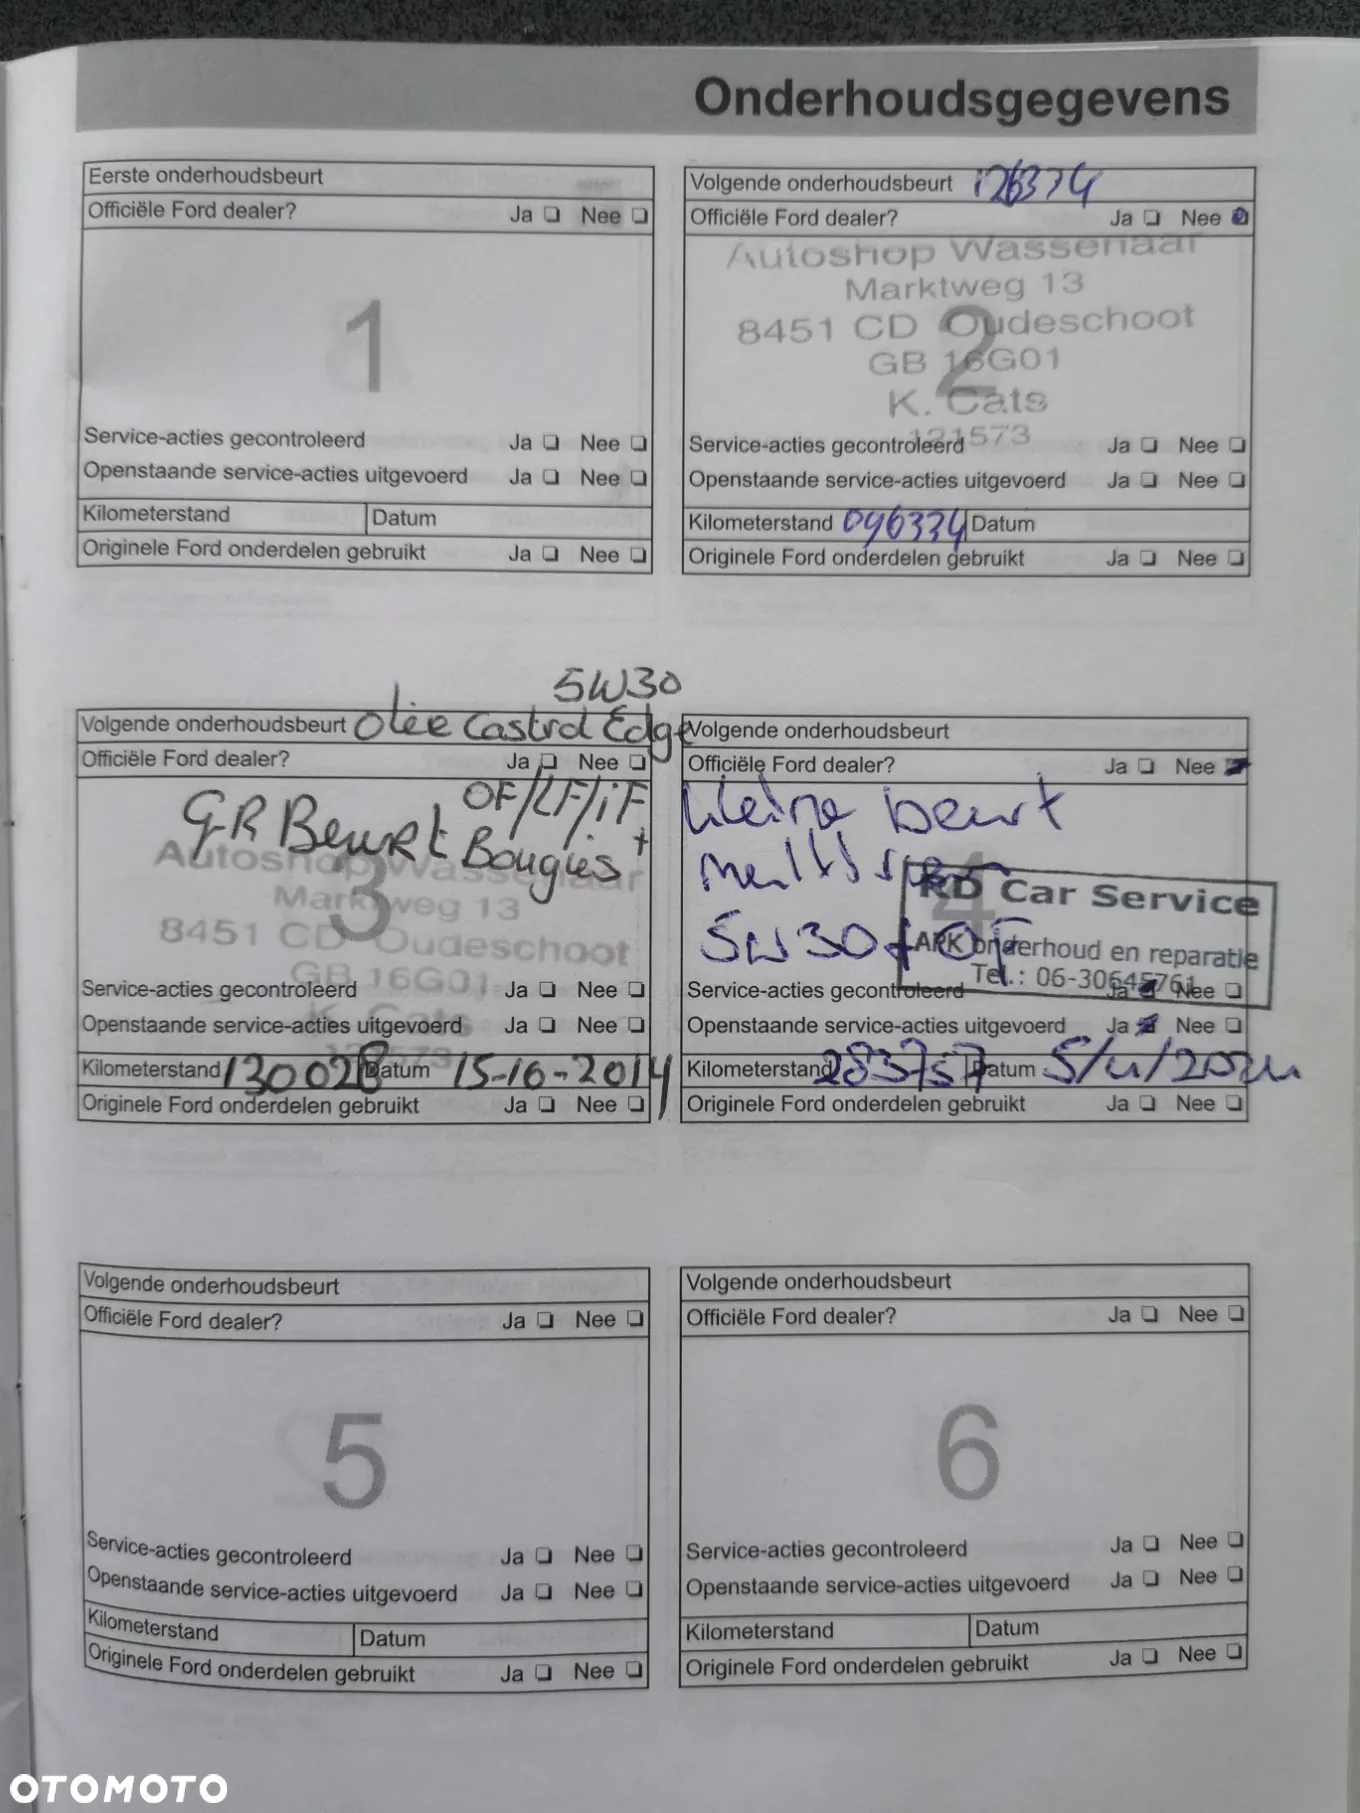 Onderhoudsgegevens
Eerste onderhoudsbeurt
Officiële Ford dealer? Ja ❏ Nee ❏
1
Service-acties gecontroleerd Ja ❏ Nee ❏
Openstaande service-acties uitgevoerd Ja ❏ Nee ❏
Kilometerstand Datum
Originele Ford onderdelen gebruikt Ja ❏ Nee ❏
Volgende onderhoudsbeurt 126334
Officiële Ford dealer? Ja ❏ Nee ❏
Autoshop Wassenaar
Marktweg 13
8451 CD Oudeschoot
2
GB 16G01
K. Cats
121573
Service-acties gecontroleerd Ja ❏ Nee ❏
Openstaande service-acties uitgevoerd Ja ❏ Nee ❏
Kilometerstand 096334 Datum
Originele Ford onderdelen gebruikt Ja ❏ Nee ❏
5W30
Volgende onderhoudsbeurt Olie Castrol Edge
Officiële Ford dealer? Ja ❏ Nee ❏
OF/LF/iF
GR Beurt Bougies +
Autoshop Wassenaar
3
Marktweg 13
8451 CD Oudeschoot
GB 16G01
Service-acties gecontroleerd Ja ❏ Nee ❏
K. Cats
Openstaande service-acties uitgevoerd Ja ❏ Nee ❏
121573
Kilometerstand 130028 Datum 15-10-2014
Originele Ford onderdelen gebruikt Ja ❏ Nee ❏
Volgende onderhoudsbeurt
Officiële Ford dealer? Ja ❏ Nee ❏
kleine beurt
4
RD Car Service
5W30 + OF
APK onderhoud en reparatie
Tel.: 06-30645761
Service-acties gecontroleerd Ja ❏ Nee ❏
Openstaande service-acties uitgevoerd Ja ❏ Nee ❏
Kilometerstand 283757 Datum
Originele Ford onderdelen gebruikt Ja ❏ Nee ❏
Volgende onderhoudsbeurt
Officiële Ford dealer? Ja ❏ Nee ❏
5
Service-acties gecontroleerd Ja ❏ Nee ❏
Openstaande service-acties uitgevoerd Ja ❏ Nee ❏
Kilometerstand Datum
Originele Ford onderdelen gebruikt Ja ❏ Nee ❏
Volgende onderhoudsbeurt
Officiële Ford dealer? Ja ❏ Nee ❏
6
Service-acties gecontroleerd Ja ❏ Nee ❏
Openstaande service-acties uitgevoerd Ja ❏ Nee ❏
Kilometerstand Datum
Originele Ford onderdelen gebruikt Ja ❏ Nee ❏
OTOMOTO